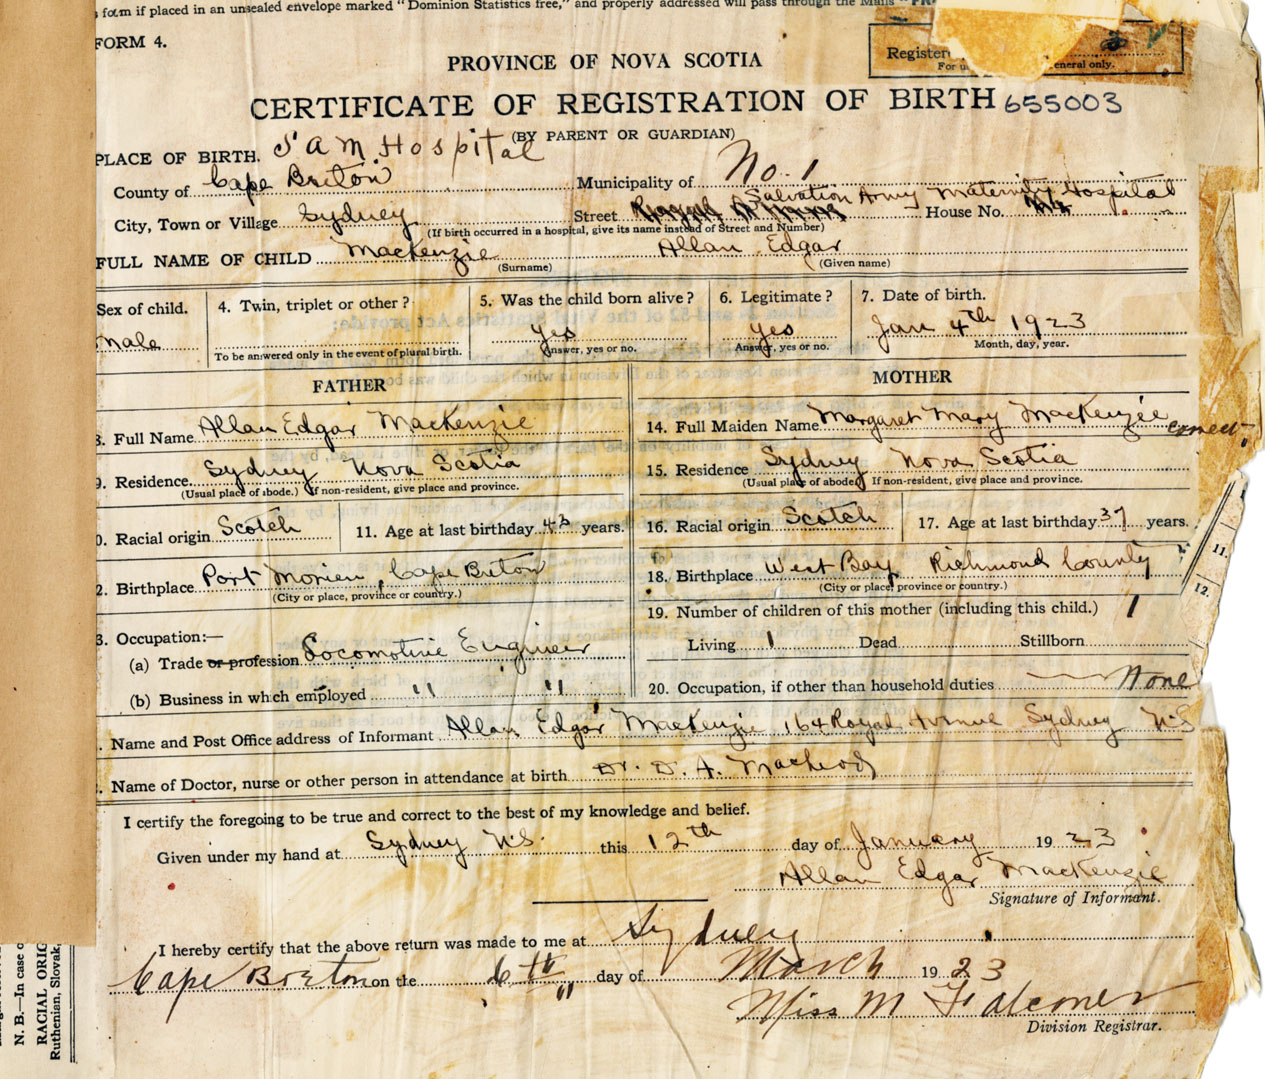 form if placed in an unsealed envelope marked "Dominion Statistics free," and properly addressed will pass through the Mails
FORM 4.
PROVINCE OF NOVA SCOTIA
Register
For u eneral only.
CERTIFICATE OF REGISTRATION OF BIRTH 655003
(BY PARENT OR GUARDIAN)
PLACE OF BIRTH. S A M. Hospital
County of Cape Breton Municipality of No. 1
City, Town or Village Sydney Street Salvation Army Maternity Hospital House No.
(If birth occurred in a hospital, give its name instead of Street and Number)
FULL NAME OF CHILD MacKenzie Allan Edgar
(Surname) (Given name)
Sex of child. 4. Twin, triplet or other? 5. Was the child born alive? 6. Legitimate? 7. Date of birth.
Male yes yes Jan 4th 1923
To be answered only in the event of plural birth. Answer, yes or no. Answer, yes or no. Month, day, year.
FATHER MOTHER
8. Full Name Allan Edgar MacKenzie 14. Full Maiden Name Margaret Mary MacKenzie correct
9. Residence Sydney Nova Scotia 15. Residence Sydney Nova Scotia
(Usual place of abode.) If non-resident, give place and province. (Usual place of abode) If non-resident, give place and province.
0. Racial origin Scotch 11. Age at last birthday 43 years. 16. Racial origin Scotch 17. Age at last birthday 37 years.
2. Birthplace Port Morien, Cape Breton 18. Birthplace West Bay Richmond County
(City or place, province or country.) (City or place, province or country.)
3. Occupation:— 19. Number of children of this mother (including this child.) 1
(a) Trade or profession Locomotive Engineer Living 1 Dead Stillborn
(b) Business in which employed " " 20. Occupation, if other than household duties None
Name and Post Office address of Informant Allan Edgar MacKenzie 164 Royal Avenue Sydney N.S
Name of Doctor, nurse or other person in attendance at birth Dr. D. A. Macleod
I certify the foregoing to be true and correct to the best of my knowledge and belief.
Given under my hand at Sydney N.S. this 12th day of January 1923
Allan Edgar MacKenzie
Signature of Informant.
I hereby certify that the above return was made to me at Sydney
Cape Breton on the 6th " day of March 1923
Miss M Falconer
Division Registrar.
11.
12.
N. B.—In case o
RACIAL ORIG
Ruthenian, Slovak,